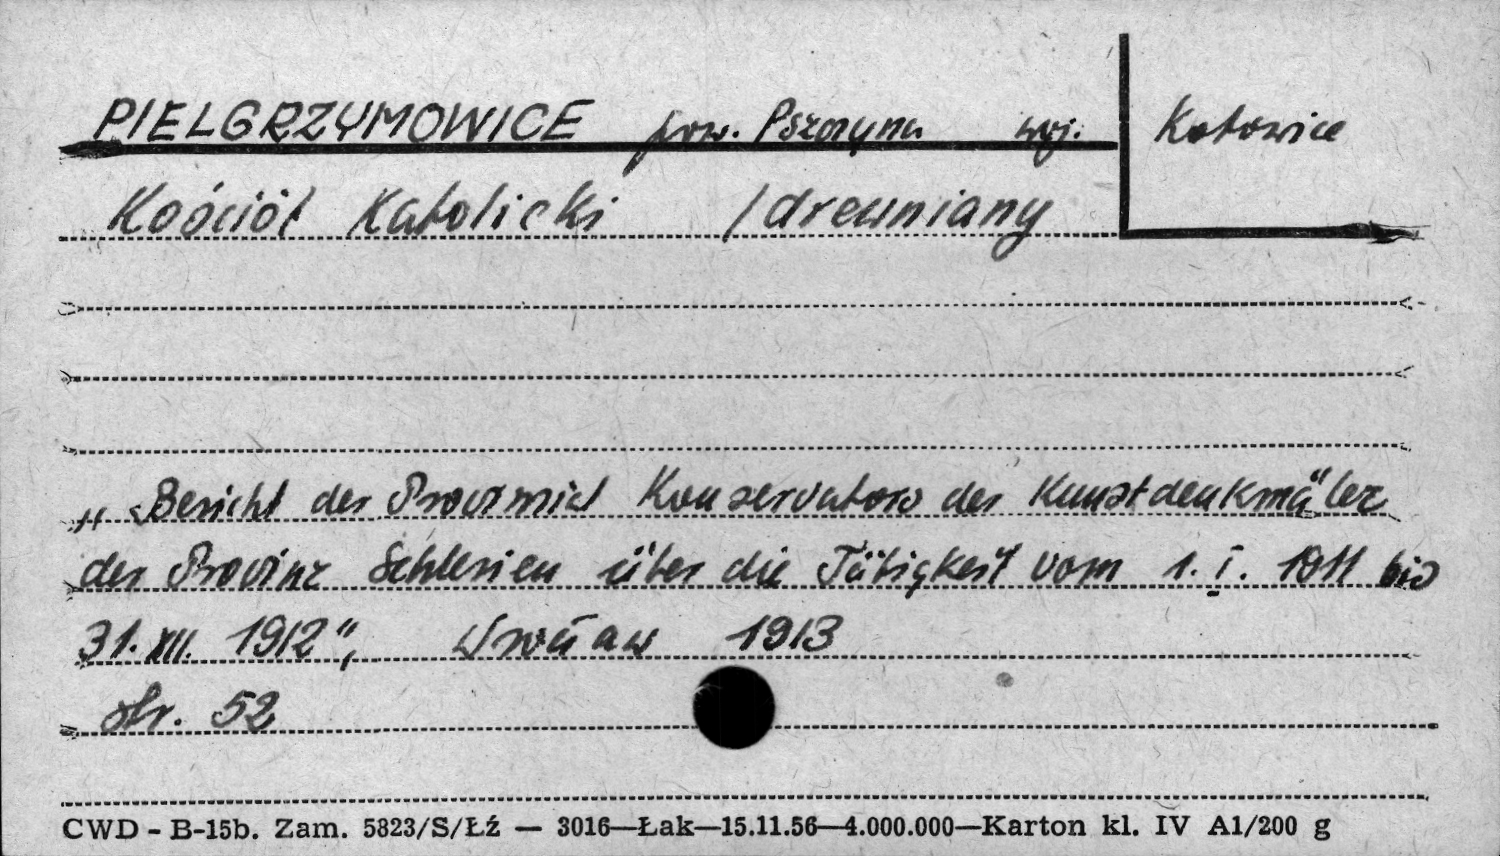 PIELGRZYMOWICE pow. Pszczyna woj. Katowice
Kościół Katolicki /drewniany
„Bericht des Provinzial Konservators der Kunstdenkmäler
der Provinz Schlesien über die Tätigkeit vom 1. I. 1911 bis
31. XII. 1912", Wrocław 1913
str. 52
CWD - B-15b. Zam. 5823/S/Łź — 3016—Łak—15.11.56—4.000.000—Karton kl. IV A1/200 g